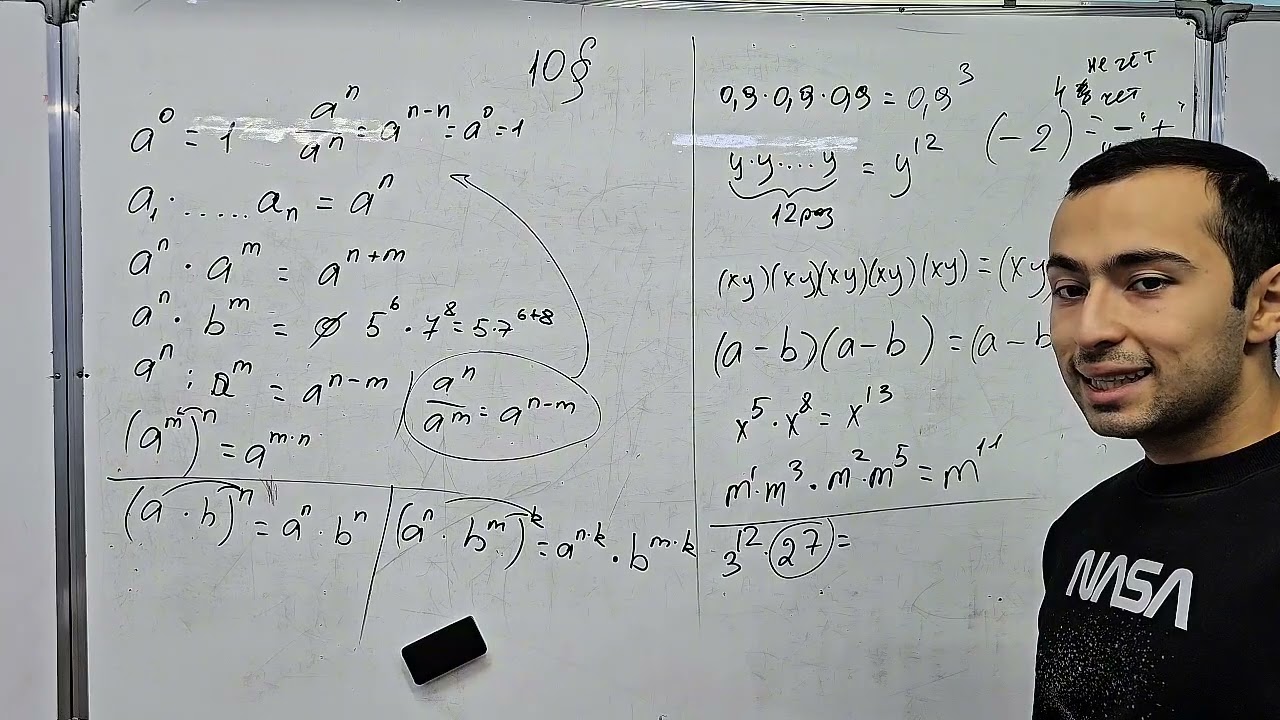 10§
a⁰ = 1   aⁿ/aⁿ = aⁿ⁻ⁿ = a⁰ = 1
a₁ · ..... aₙ = aⁿ
aⁿ · aᵐ = aⁿ⁺ᵐ
aⁿ · bᵐ = ∅ 5⁶ · 7⁸ = 5·7⁶⁺⁸
aⁿ : aᵐ = aⁿ⁻ᵐ | aⁿ/aᵐ = aⁿ⁻ᵐ
(aᵐ)ⁿ = aᵐ·ⁿ
(a · b)ⁿ = aⁿ · bⁿ | (aⁿ · bᵐ)ᵏ = aⁿ·ᵏ · bᵐ·ᵏ
0,9 · 0,9 · 0,9 = 0,9³
нечёт
чёт
(-2) = - +
y · y · .... y = y¹²
12 раз
(xy)(xy)(xy)(xy)(xy) = (xy
(a - b)(a - b) = (a - b
x⁵ · x⁸ = x¹³
m¹ · m³ · m² · m⁵ = m¹¹
3¹² · 27 =
NASA